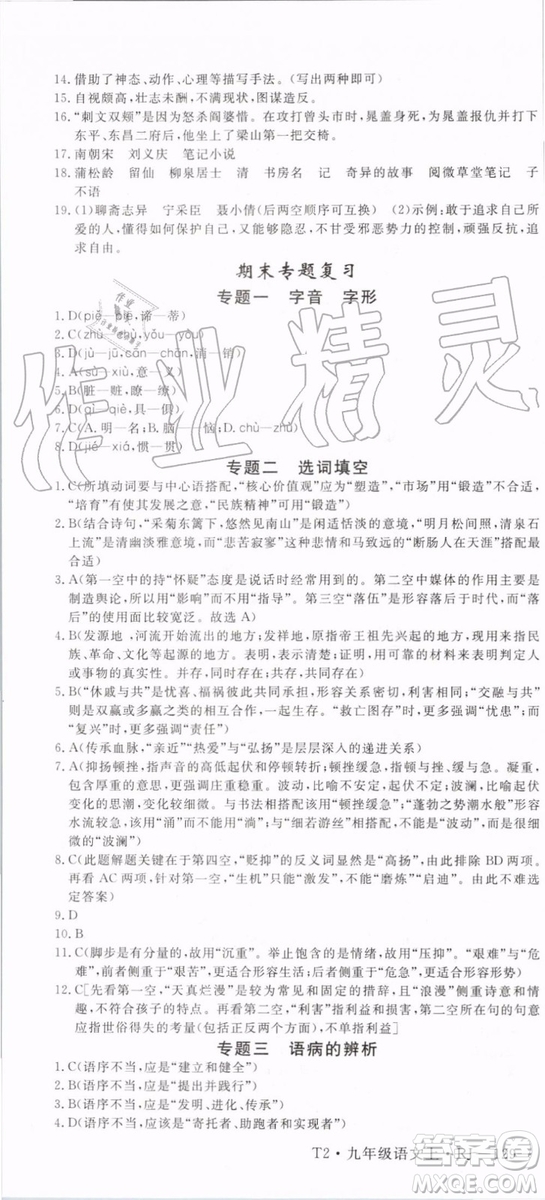 14. 借助了神态、动作、心理等描写手法。(写出两种即可)
15. 自视颇高，壮志未酬，不满现状，图谋造反。
16. “刺文双颊”是因为怒杀阎婆惜。在攻打曾头市时，晁盖身死，为晁盖报仇并打下
东平、东昌二府后，他坐了梁山第一把交椅。
17. 南朝宋 刘义庆 笔记小说
18. 蒲松龄 留仙 柳泉居士 清 书房名 记 奇异的故事 阅微草堂笔记 子
不语
19. (1)聊斋志异 宁采臣 聂小倩(后两空顺序可互换) (2)示例：敢于追求自己所
爱的人，懂得如何保护自己，又能够隐忍，不甘被邪恶势力的控制，勇敢地追求
自由。
期末专题复习
专题一 字音 字形
1. D(piě—piē，谛—蒂)
2. C(zhù yǒu—yōu)
3. D(jù—jū，cán—chán，清—销)
4. A(sù—xiù，意—义)
5. B(脏—赃，瞭—缭)
6. D(qì—qiè，具—俱)
7. C(A. 明—名；B. 脑—恼；D. chù—zhù)
8. D(jié—xiá，惯—贯)
专题二 选词填空
1. C(所填动词要与中心语搭配，“核心价值观”应为“塑造”，“市场”用“锻造”不合适，
“培育”才有使命，“民族精神”可用“锻造”)
2. B(结合诗句，“采菊东篱下，悠然见南山”是闲适恬淡的意境，“明月松间照，清泉石
上流”是清幽雅致的意境。而“悲苦寂寥”这些情感和马致远的“断肠人在天涯”搭配最
合适)
3. A(第一空中的持“怀疑”态度是说明不相信。第二空中媒体的作用主要为舆论
导向性，所以用“影响”而不用“指导”。第三空“落伍”是形容落后于时代，而“落
后”的使用面比较宽泛。故选A)
4. B(发源地，河流开始流出的地方；发祥地，原指帝王祖先兴起的地方，现用来指民
族、革命、文化等起源的地方。表明，表示清楚；证明，用可靠的材料来表明或断定人
或事物的真实性。并存，同时存在；共存，共同存在)
5. B(“休戚与共”是忧喜、福祸彼此共同承担，形容关系密切，利害相同；“交融与共”
则是双赢或多赢之类的形容。“救亡图存”，更强调对现状的解决，所以用“忧患”；而
“复兴”时更强调“责任”)
6. A(传承血脉，“亲近”“热爱”与“弘扬”是层层深人的递进关系)
7. A(抑扬顿挫，指声音的高低起伏和停顿转折；顿挫缓急，指顿挫与缓、急。凝重，
包含厚重的意思，更强调庄重稳重。波动，比喻起伏变化大的思想、情绪；波澜，比喻起伏
变化的思潮，变化较为细微。与书法相搭配，应为“顿挫缓急”；“蓬勃之势潮水般”形容
水流湍急，故应用“涌”而不用“流”；与“细若游丝”相搭配，不能为“波动”，而是很细
微的“波澜”)
8. C(此题解题关键在于第四空，“贬抑”的反义词显然是“高扬”，由此排除BD两项。
再看AC两项，针对第一空，“生机”只能“激发”，不能“磨炼”“启迪”。由此不难选
定答案)
9. D
10. B
11. C(脚步是有分量的，故用“沉重”。举止中包含的是情绪，故用“压抑”。“艰难”与“危
急”，前者侧重于“艰苦”，更适合形容生活；后者侧重于“危急”，更适合形容形势)
12. C[先看第一空，“天真烂漫”是较为常见和固定的措辞，且“浪漫”侧重情
趣，不符合孩子的特点。再看第二空，“利害”指利益和损害，第二空所在的句意
应指世俗得失的考量(仅有坏处不能称为“考量”)，单指利益]
专题三 语病的辨析
1. C(语序不当，应是“建立和健全”)
2. B(语序不当，应是“提出并践行”)
3. C(语序不当，应为“发明、进化、传承”)
4. D(语序不当，应该是“寄托者、助跑者和实现者”)
T2·九年级语文上·RJ 129